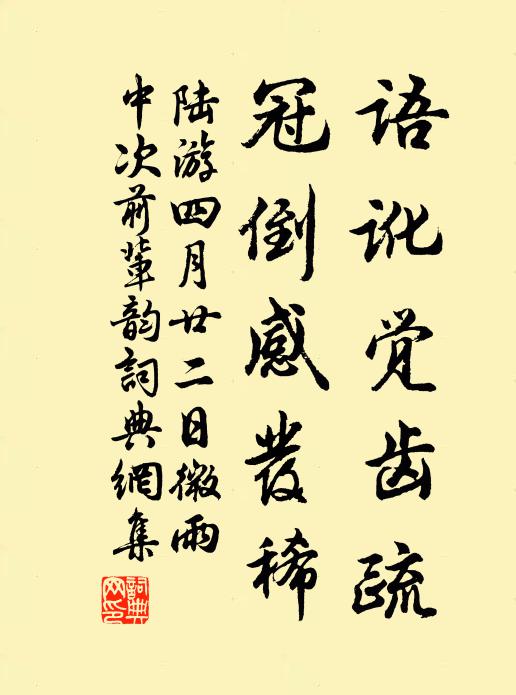 语讹觉齿疏
冠倒感發稀
陆游四月廿二日微雨
中次前辈韵詞典網集
詞典